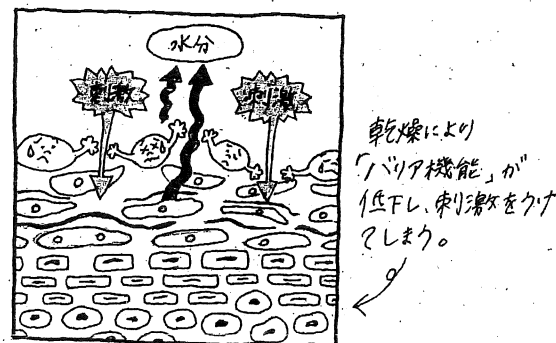 水分
刺激
刺激
乾燥により
「バリア機能」が
低下し、刺激をうけ
てしまう。